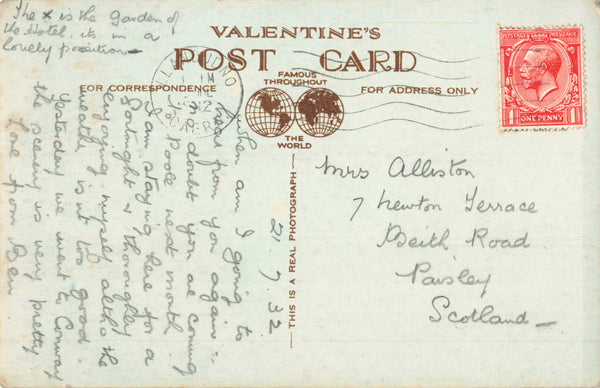 The x is the Garden of
the Hotel. its in a
lovely position —
VALENTINE'S
POST CARD
FAMOUS
THROUGHOUT
THE
WORLD
FOR CORRESPONDENCE
FOR ADDRESS ONLY
LLANDUDNO
CAERN
POSTAGE
REVENUE
ONE PENNY
21. 7. 32
When am I going to
hear from you again:-
no doubt you are coming
to Poole next month.
I am staying here for a
fortnight & thoroughly
enjoying myself altho the
weather isn't too good.
Yesterday we went to Conway
the scenery is very pretty
Love from Ben
THIS IS A REAL PHOTOGRAPH
Mrs Alliston
7 Newton Terrace
Beith Road
Paisley
Scotland —